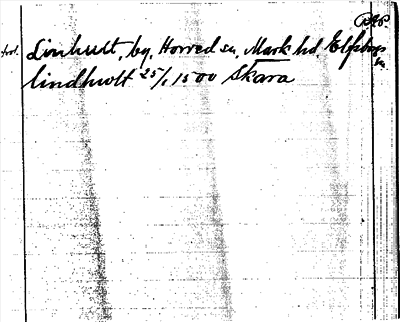 Linhult, by, Horred sn, Mark hd, Elfsborgs
ln
lindhwlt 25/1 1500 Skara